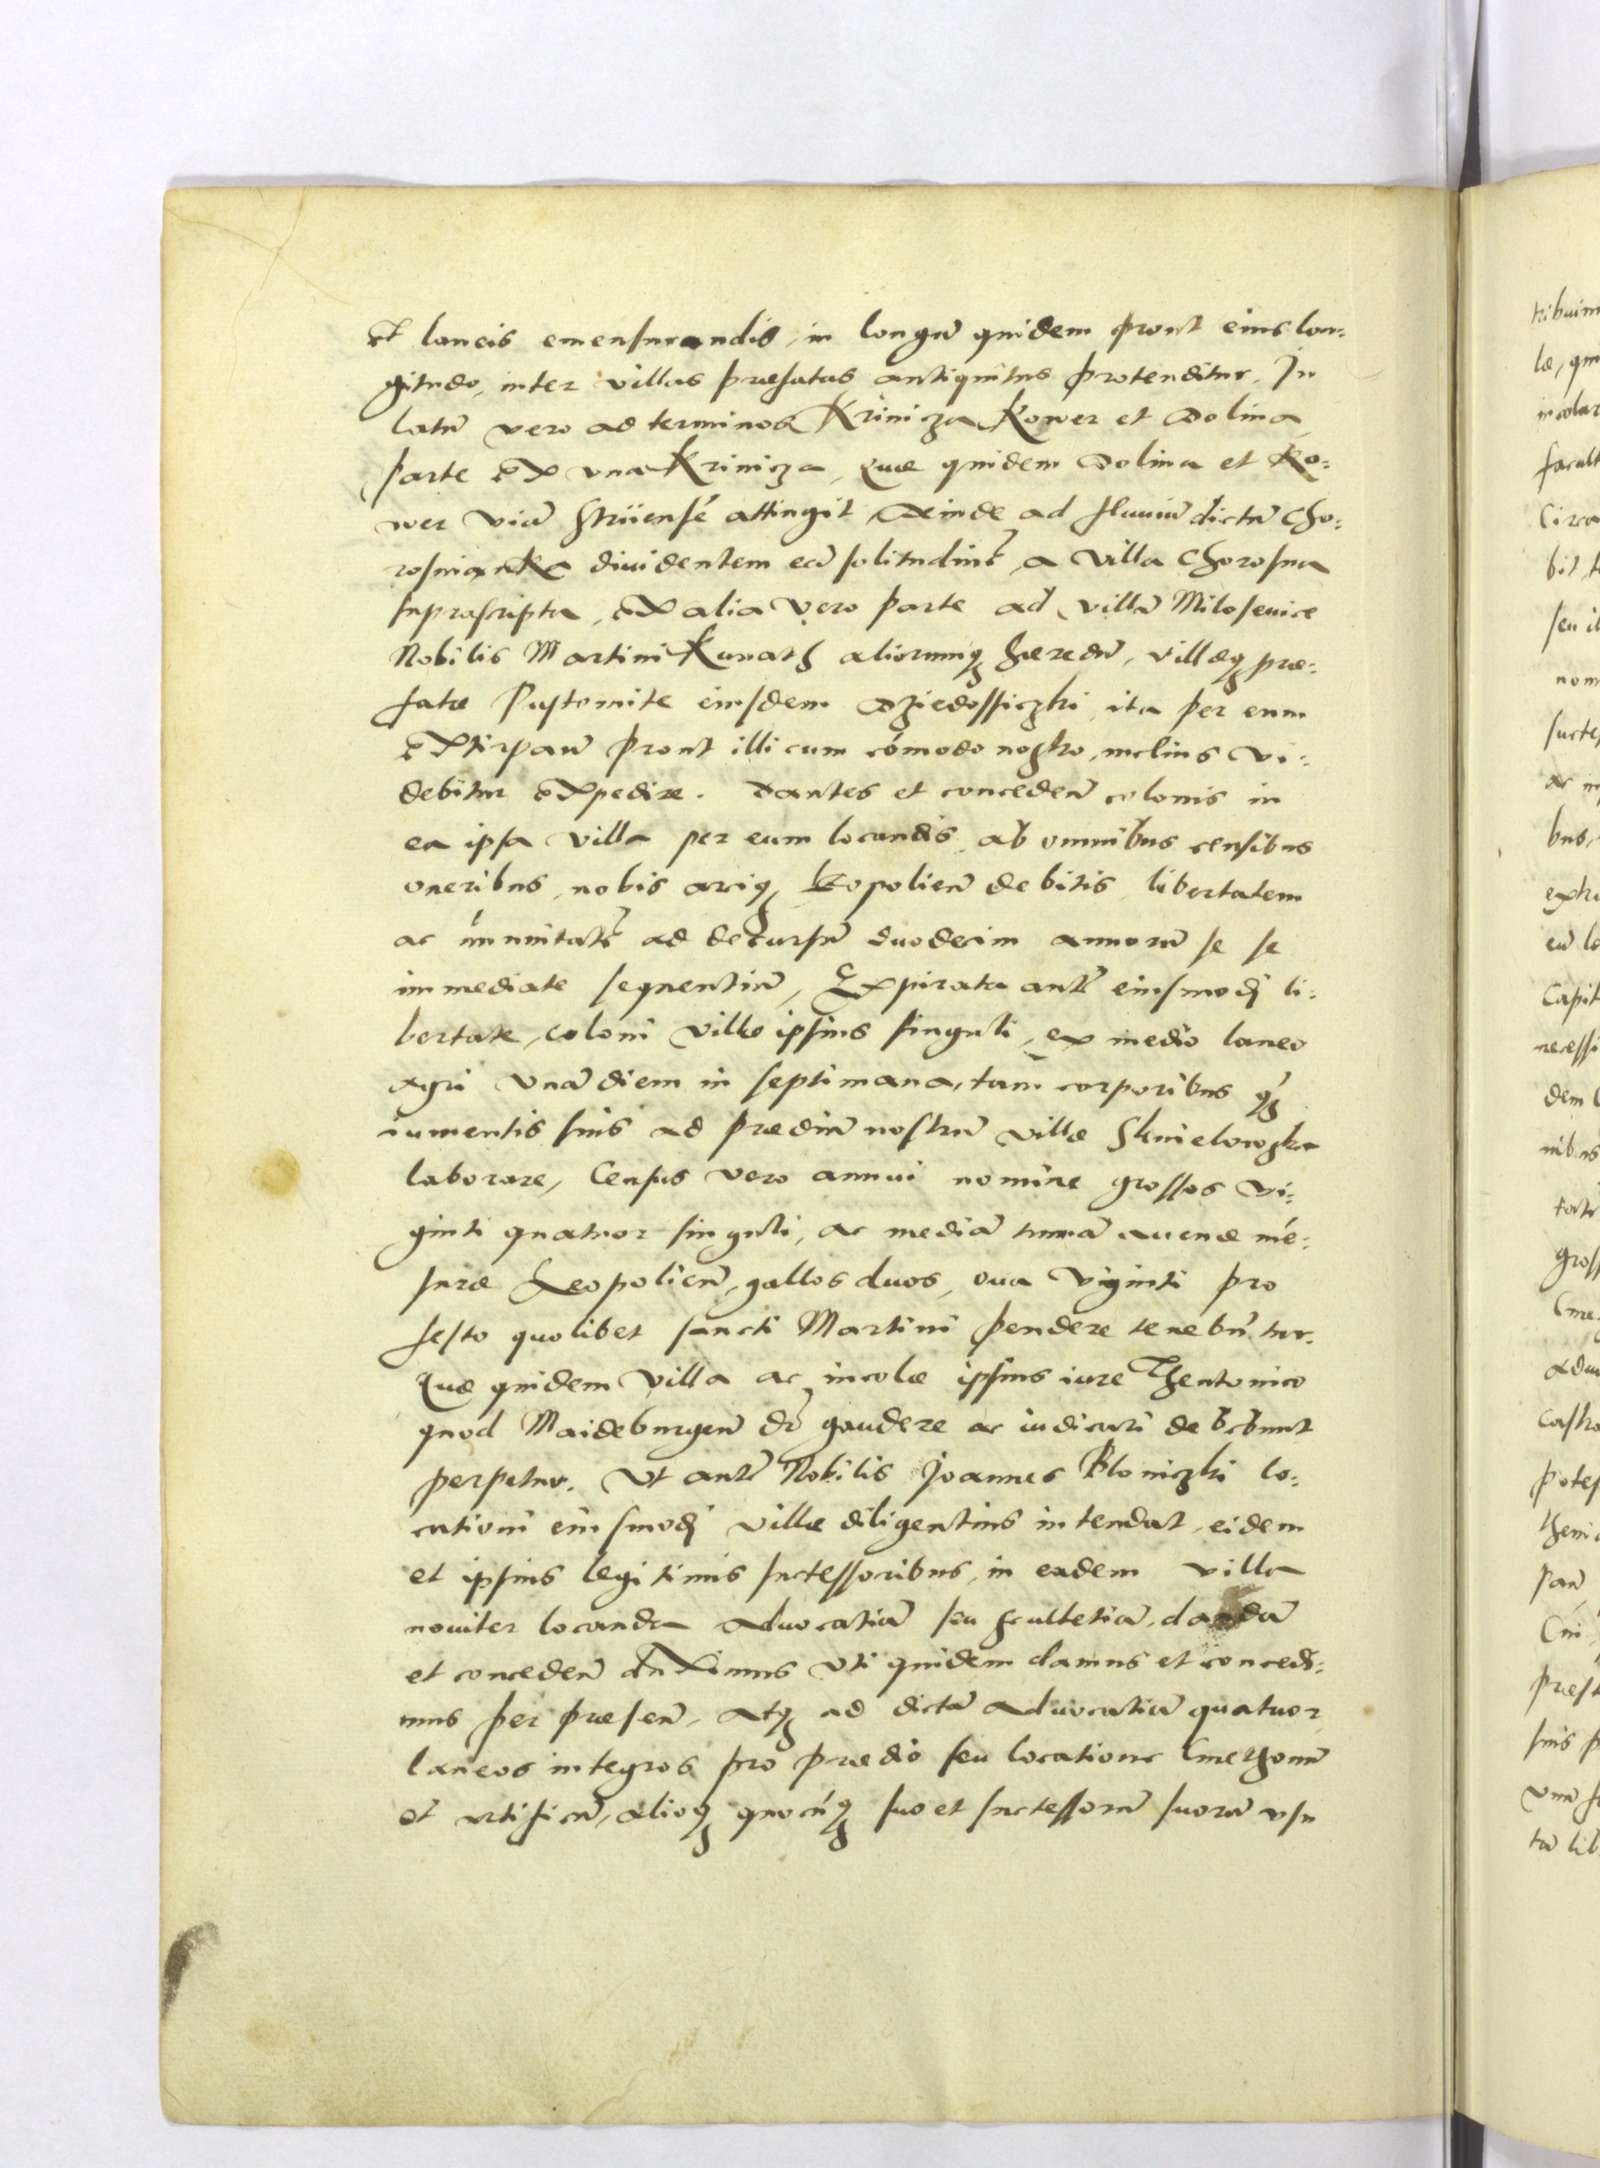 et laneis emensurandis, in longū quidem prout eius lon=
gitudo, inter villas præfatas antiquitus protenditur. In
latū vero ad terminos Krinicza Kower et Dolina,
parte ex vna Krinicza, Quæ quidem Dolina et Ko=
wer viā Striiensē attingit, Deinde ad fluuiū dictū Cho=
rosnianka diuidentem eā solitudinē a villa Chorosna
suprascripta, ex alia vero parte ad villā Miloseuice
Nobilis Martini Kunath aliorumq hæredū, villæq præ=
fatæ Pustomite eiusdem Dziedossiczki, ita per eum
extirpaū prout illi cum cōmodo nostro, melius vi=
debitur expedire. Dantes et concedeñ colonis in
ea ipsa villa per eum locandis ab omnibus censibus
oneribus, nobis arciq Leopolieñ debitis libertatem
ac īmunitatē ad decursū duodecim annorū se se
immediate sequentiū, Expirata autē eiusmodi li=
bertate, coloni villæ ipsius singuli, ex medio laneo
agri vnā diem in septimana, tam corporibus q̄
iumentis suis ad prædiū nostrū villæ Sknielowska
laborare, Census vero annui nomine grossos vi=
ginti quatuor singuli, ac mediā tunnā auenæ mē=
suræ Leopolieñ, gallos duos, oua viginti pro
festo quolibet sancti Martini pendere tenebūtur.
Quæ quidem villa ac incolæ ipsius iure Theutonico
quod Maideburgeñ dr̄ gaudere ac iudicari debebunt
perpetuo. Vt autē Nobilis Joannes Bloniczki lo=
cationi eiusmodi villæ diligentius intendat, eidem
et ipsius legitimis successoribus, in eadem villa
nouiter locanda aduocatiā seu scultetiā, dandā
et concedeñ duximus vti quidem damus et concedi=
mus per præseñ, atq ad dictā aduocatiā quatuor
laneos integros pro prædio seu locatione Cmethonū
et artificū, alioq quocūq suo et successorū suorū vsu